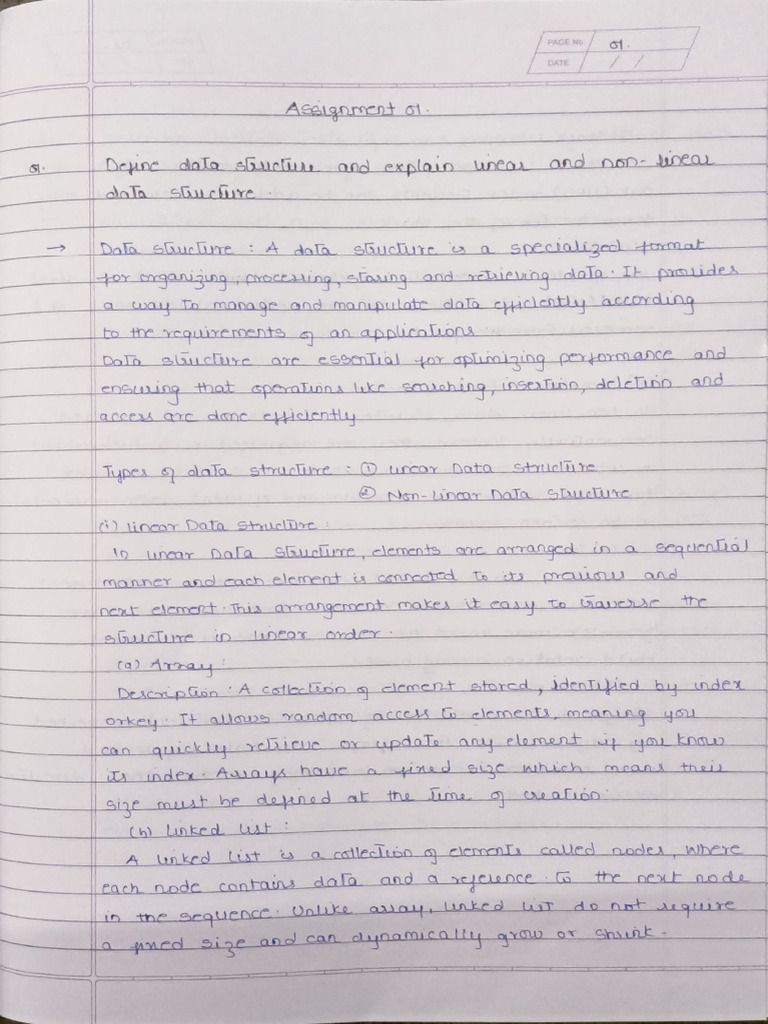 PAGE No. 01.
DATE / /
Assignment 01.
Q1. Define data structure and explain linear and non-linear
data structure.
→ Data structure : A data structure is a specialized format
for organizing, processing, storing and retrieving data. It provides
a way to manage and manipulate data efficiently according
to the requirements of an applications
Data structure are essential for optimizing performance and
ensuring that operations like searching, insertion, deletion and
access are done efficiently
Types of data structure : ① Linear Data structure
② Non-Linear Data structure
(i) Linear Data structure :
In Linear Data structure, elements are arranged in a sequential
manner and each element is connected to its previous and
next element. This arrangement makes it easy to traverse the
structure in linear order.
(a) Array :
Description : A collection of element stored, identified by index
orkey. It allows random access to elements, meaning you
can quickly retrieve or update any element if you know
its index. Arrays have a fixed size which means their
size must be defined at the time of creation.
(b) Linked List :
A linked list is a collection of elements called nodes, where
each node contains data and a reference to the next node
in the sequence. Unlike array, linked list do not require
a fixed size and can dynamically grow or shrink.